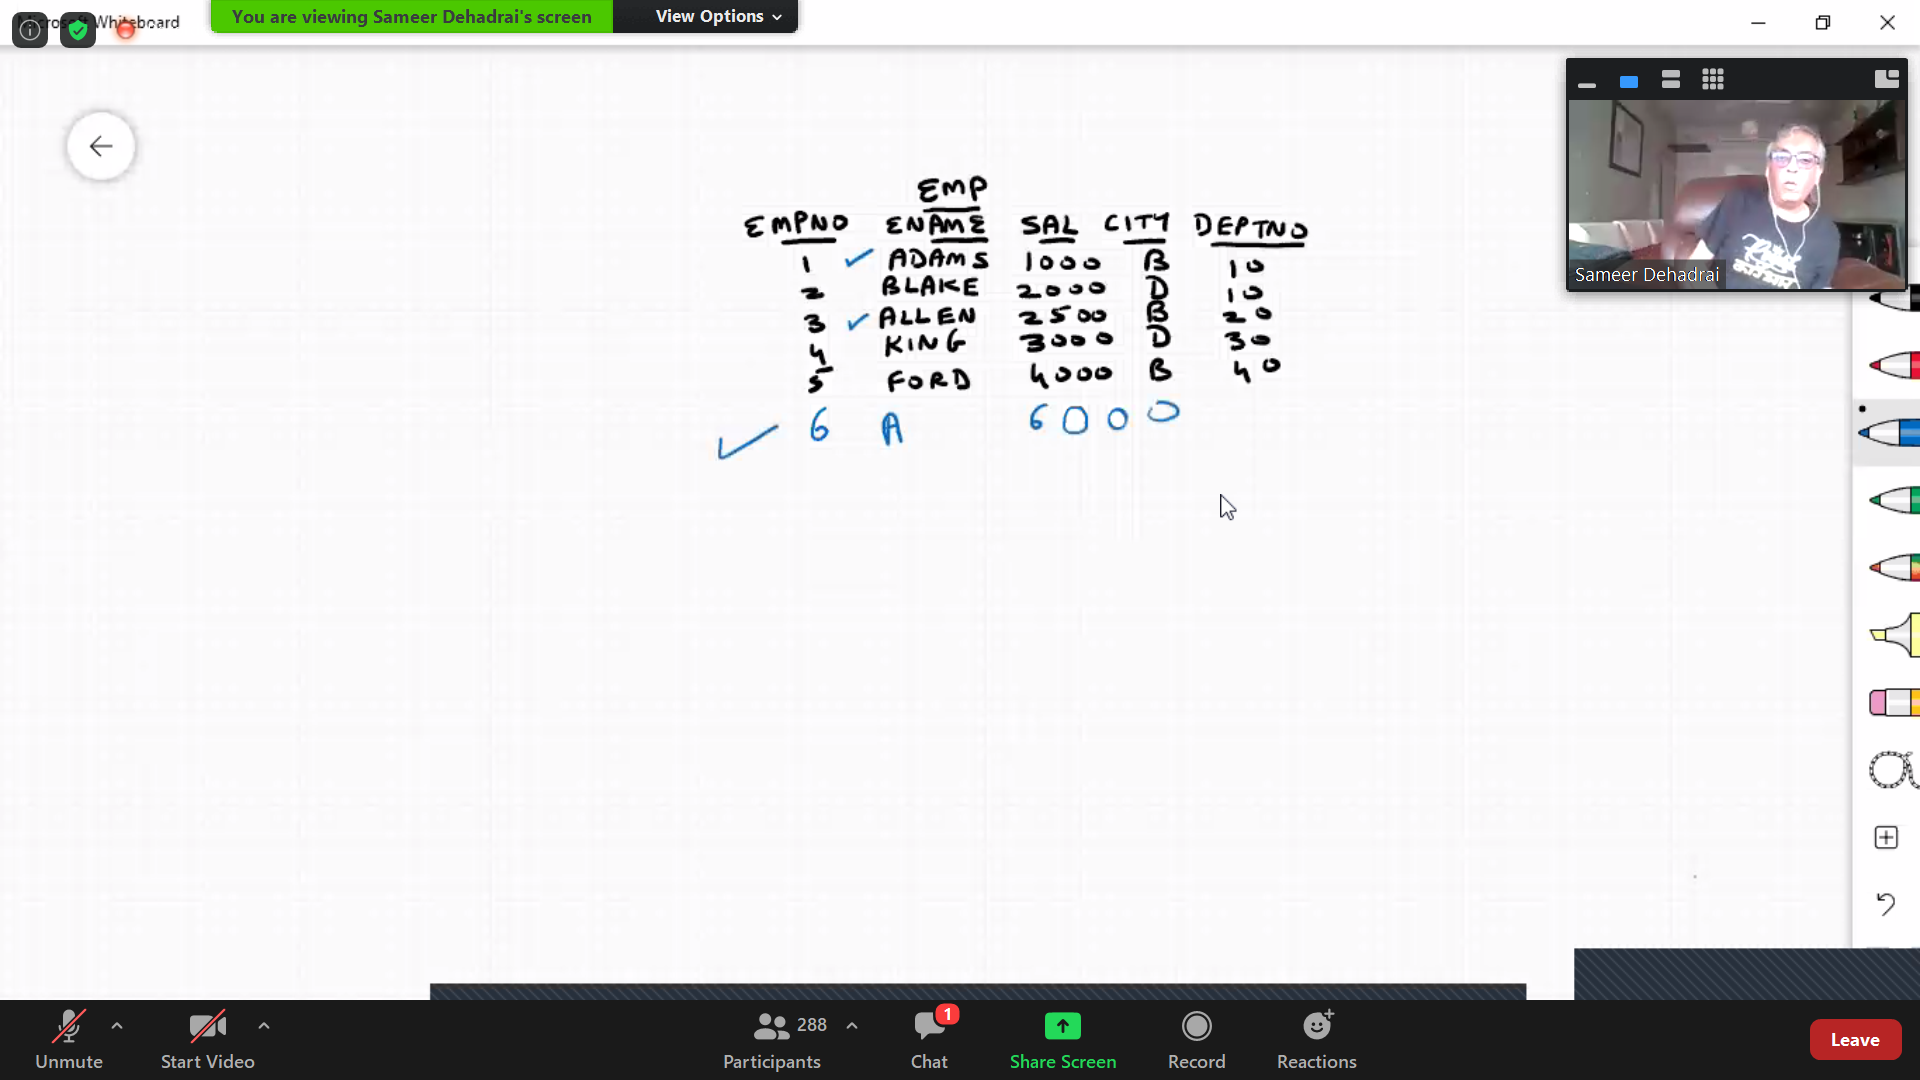 Microsoft Whiteboard
You are viewing Sameer Dehadrai's screen
View Options
Sameer Dehadrai
EMP
EMPNO ENAME SAL CITY DEPTNO
1 ✓ ADAMS 1000 B 10
2 BLAKE 2000 D 10
3 ✓ ALLEN 2500 B 20
4 KING 3000 D 30
5 FORD 4000 B 40
✓ 6 A 6000
Unmute
Start Video
288
Participants
1
Chat
Share Screen
Record
Reactions
Leave